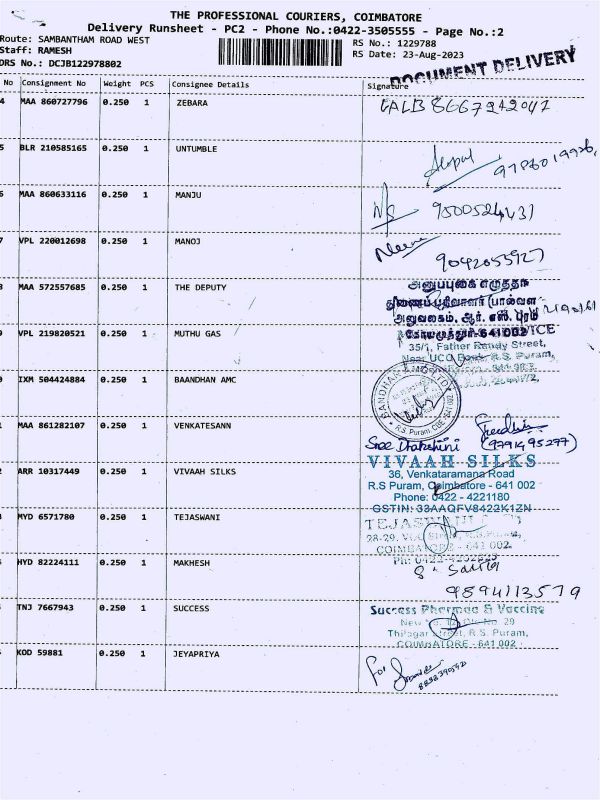 THE PROFESSIONAL COURIERS, COIMBATORE
Delivery Runsheet - PC2 - Phone No.:0422-3505555 - Page No.:2
Route: SAMBANTHAM ROAD WEST
RS No.: 1229788
Staff: RAMESH
RS Date: 23-Aug-2023
DRS No.: DCJB122978802
DOCUMENT DELIVERY
No Consignment No Weight PCS Consignee Details Signature
4 MAA 860727796 0.250 1 ZEBARA
5 BLR 210585165 0.250 1 UNTUMBLE
6 MAA 860633116 0.250 1 MANJU 9500524431
7 VPL 220012698 0.250 1 MANOJ
8 MAA 572557685 0.250 1 THE DEPUTY
அனுவலகம், ஆர். எஸ். புரம்
கோயமுத்தூர்-641002
9 VPL 219820521 0.250 1 MUTHU GAS
35/1, Father Randy Street,
Near UCO Bank, R.S. Puram,
0 IXM 504424884 0.250 1 BAANDHAN AMC
R.S. Puram, CBE-641 002
1 MAA 861282107 0.250 1 VENKATESANN
Sree Drakshini (9791495277)
2 ARR 10317449 0.250 1 VIVAAH SILKS
VIVAAH SILKS
36, Venkataramana Road
R.S Puram, Coimbatore - 641 002
Phone: 0422 - 4221180
GSTIN: 33AAQFV8422K1ZN
3 HYD 6571780 0.250 1 TEJASWANI
28-29,
COIMBATORE - 641 002.
4 HYD 82224111 0.250 1 MAKHESH
9894113579
5 TNJ 7667943 0.250 1 SUCCESS
Success Pharmac & Vaccine
New No. 12, Old No. 29
Thilagar Street, R.S. Puram,
COIMBATORE - 641 002
KOD 59881 0.250 1 JEYAPRIYA
For